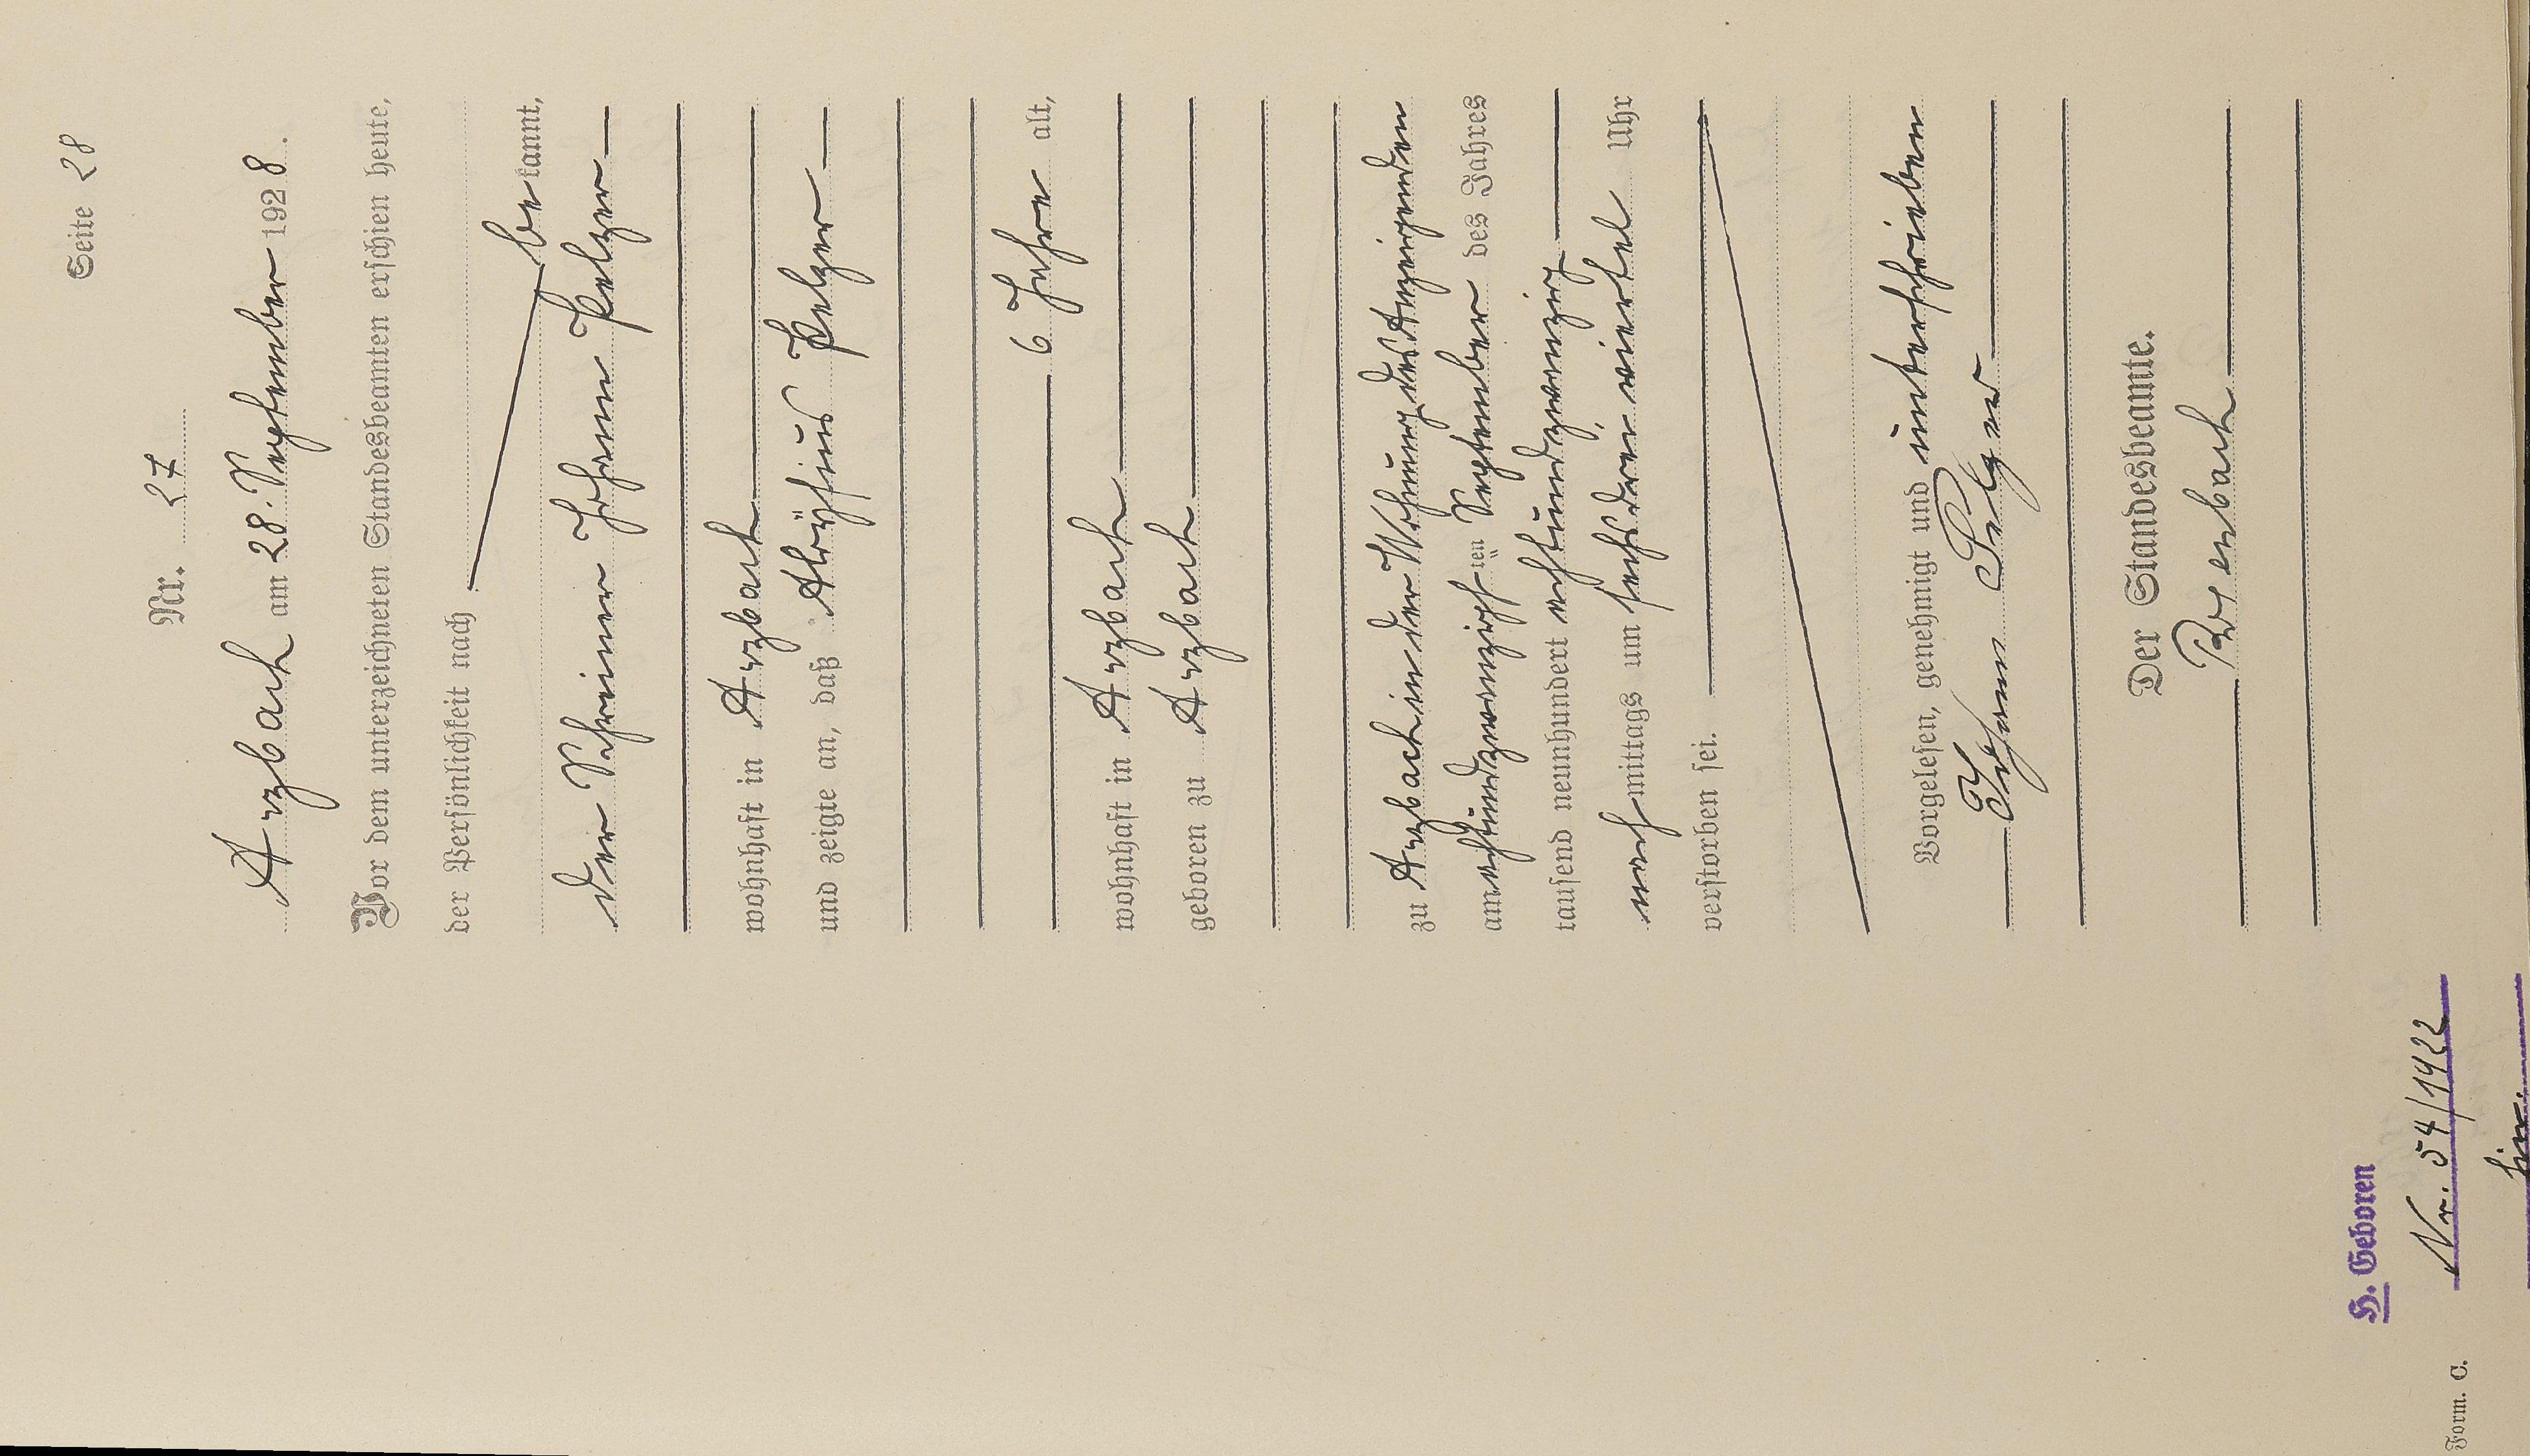 Seite 28
Nr. 27
Arzbach am 28. September 1928.
Vor dem unterzeichneten Standesbeamten erschien heute,
der Persönlichkeit nach
bekannt,
der Schreiner Johann Pelzer
wohnhaft in Arzbach
und zeigte an, daß Aloysius Pelzer
6 Jahre alt,
wohnhaft in Arzbach
geboren zu Arzbach
zu Arzbach in der Wohnung des Anzeigenden
am achtundzwanzigsten September des Jahres
tausend neunhundert achtundzwanzig
nachmittags um sechs dreiviertel Uhr
verstorben sei.
Vorgelesen, genehmigt und unterschrieben
Johann Pelzer
Der Standesbeamte.
H. Geboren
Nr. 54/1922
Form. C.